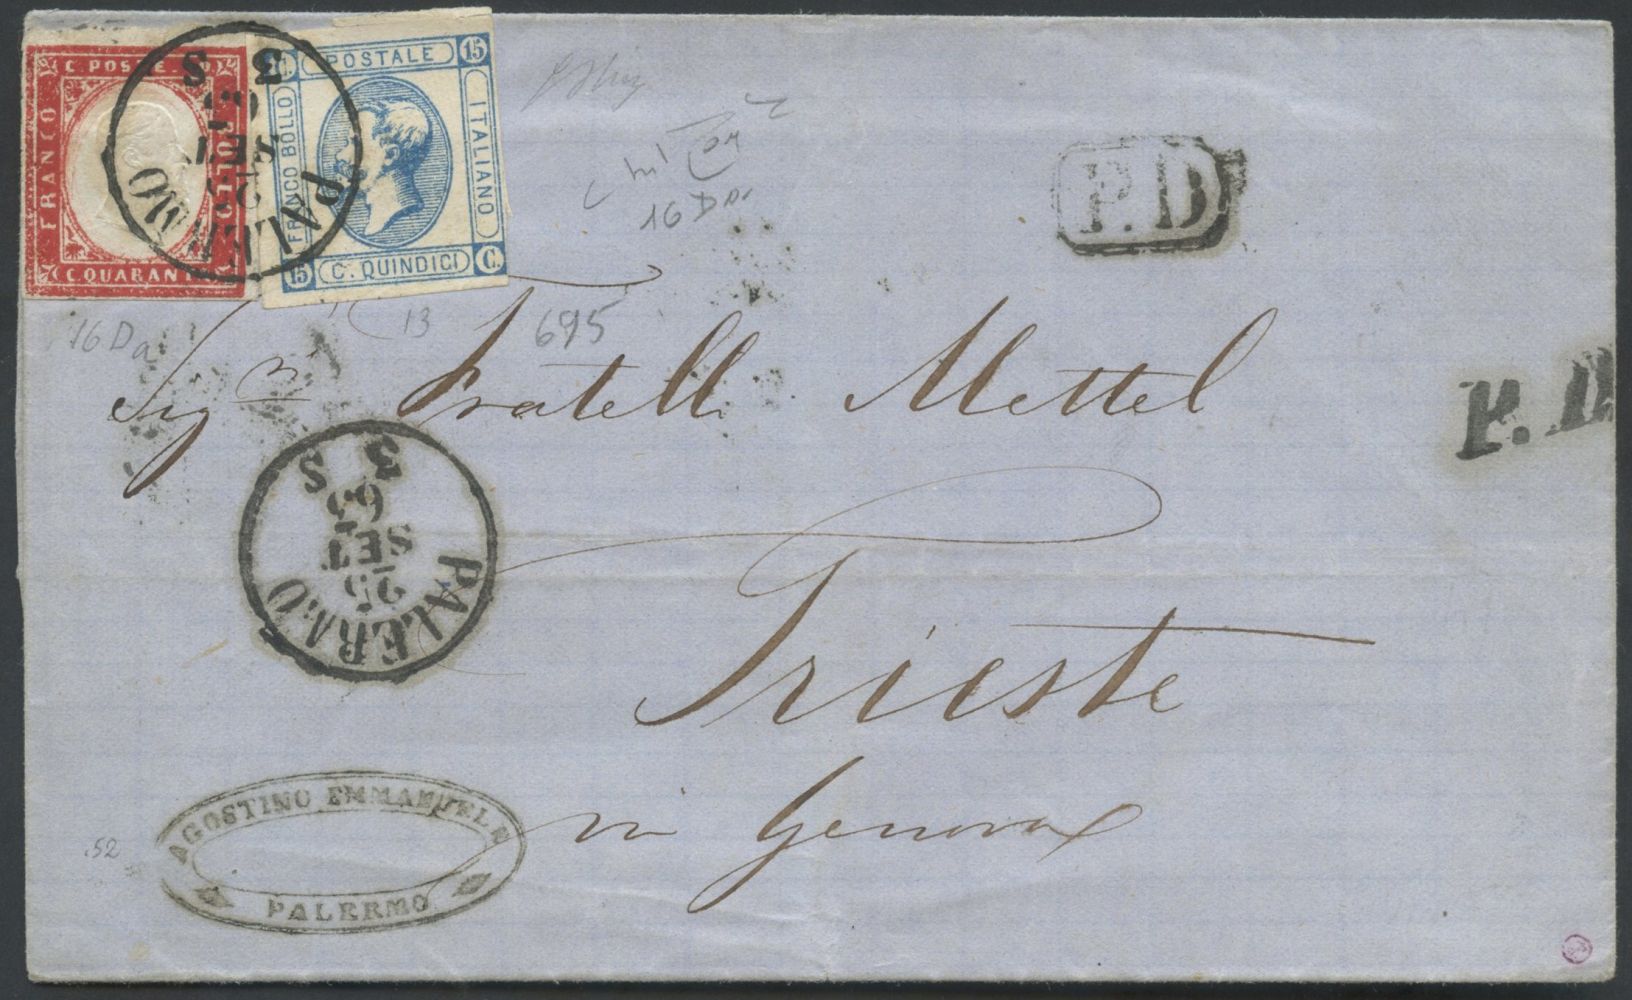 C. POSTE
FRANCO
BOLLO
C. QUARAN
C. POSTALE 15
FRANCO BOLLO
ITALIANO
15 C. QUINDICI C.
PALERMO
25
SET
63
3 S
P.D
16 Da
16 Da
13
695
P.D
Sig.ri Fratelli Mettel
PALERMO
25
SET
63
3 S
Trieste
via Genova
AGOSTINO EMMANUELE
PALERMO
52